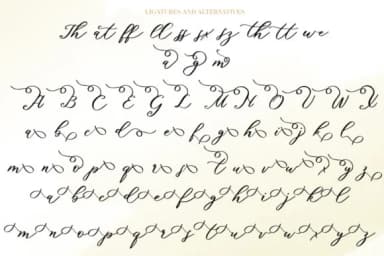 LIGATURES AND ALTERNATIVES
Th at ff ll ss sx sz th tt we
a g m
A B C E G L M N O U V W X
a b c d e f g h i j k l
m n o p q r s t u v w x y z
a b c d e f g h i j k l
m n o p q r s t u v w x y z